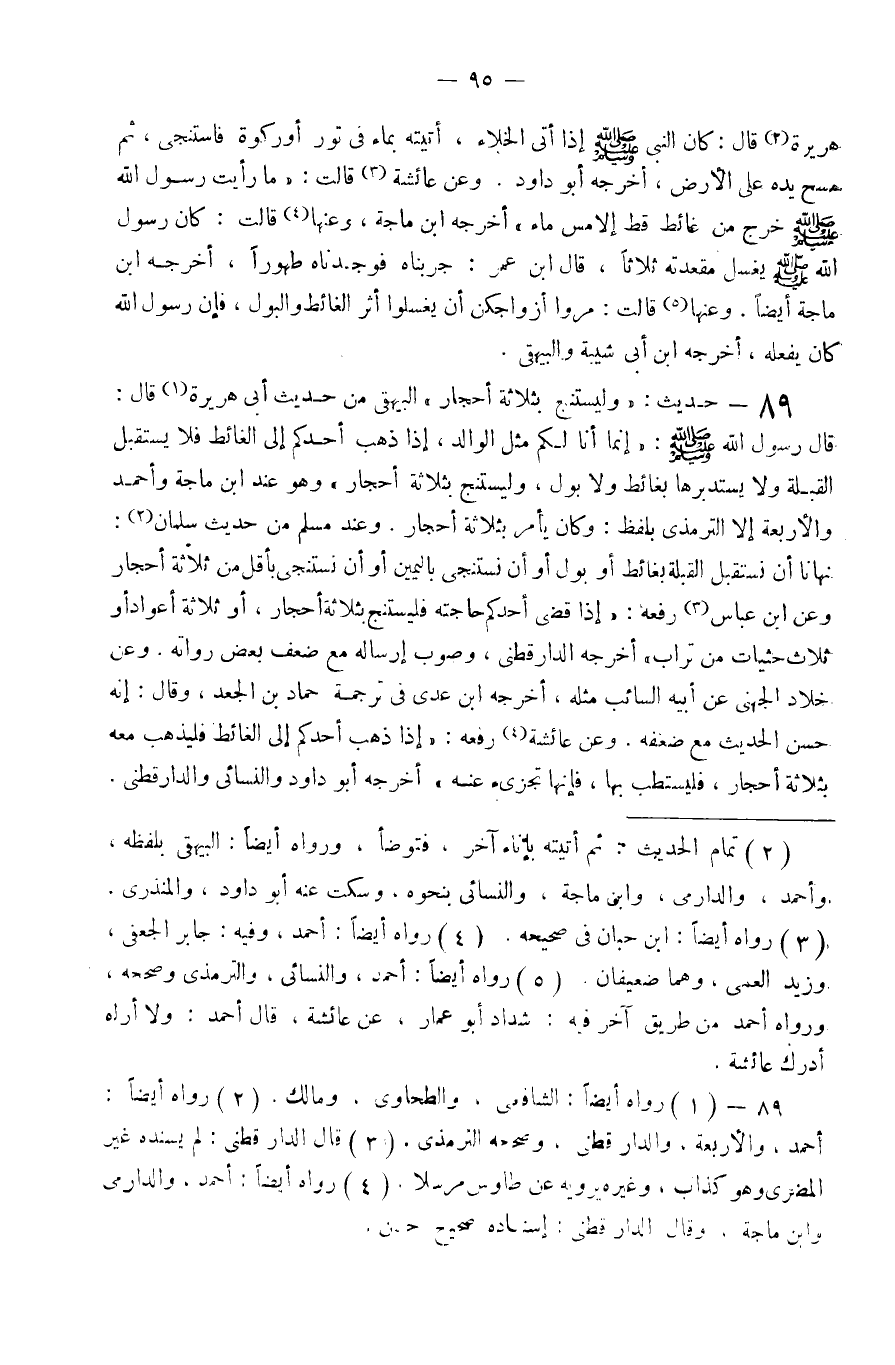 — ٩٥ —
هريرة(٢) قال : كان النبى ﷺ إذا أتى الخلاء ، أتيته بماء فى تور أوركوة فاستنجى ، ثم
مسح يده على الأرض ، أخرجه أبو داود . وعن عائشة (٣) قالت : « ما رأيت رسول الله
ﷺ خرج من غائط قط إلا مس ماء » أخرجه ابن ماجة ، وعنها(٤) قالت : كان رسول
الله ﷺ يغسل مقعدته ثلاثاً ، قال ابن عمر : جربناه فوجدناه طهوراً ، أخرجه ابن
ماجة أيضاً . وعنها(٥) قالت : مروا أزواجكن أن يغسلوا أثر الغائط والبول ، فإن رسول الله
كان يفعله ، أخرجه ابن أبى شيبة والبيهقى .
٨٩ — حديث : « وليستنج بثلاثة أحجار » البيهقى من حديث أبى هريرة(١) قال :
قال رسول الله ﷺ : « إنما أنا لكم مثل الوالد ، إذا ذهب أحدكم إلى الغائط فلا يستقبل
القبلة ولا يستدبرها بغائط ولا بول ، وليستنج بثلاثة أحجار » وهو عند ابن ماجة وأحمد
والأربعة إلا الترمذى بلفظ : وكان يأمر بثلاثة أحجار . وعند مسلم من حديث سلمان(٢) :
نهانا أن نستقبل القبلة بغائط أو بول أو أن نستنجى باليمين أو أن نستنجى بأقل من ثلاثة أحجار
وعن ابن عباس(٣) رفعه : « إذا قضى أحدكم حاجته فليستنج بثلاثة أحجار ، أو ثلاثة أعواد أو
ثلاث حثيات من تراب » أخرجه الدارقطنى ، وصوب إرساله مع ضعف بعض رواته . وعن
خلاد الجهنى عن أبيه السائب مثله ، أخرجه ابن عدى فى ترجمة حماد بن الجعد ، وقال : إنه
حسن الحديث مع ضعفه . وعن عائشة(٤) رفعه : « إذا ذهب أحدكم إلى الغائط فليذهب معه
بثلاثة أحجار ، فليستطب بها ، فإنها تجزىء عنه » أخرجه أبو داود والنسائى والدارقطنى .
( ٢ ) تمام الحديث : ثم أتيته بإناء آخر ، فتوضأ ، ورواه أيضاً : البيهقى بلفظه ،
وأحمد ، والدارمى ، وابن ماجة ، والنسائى بنحوه ، وسكت عنه أبو داود ، والمنذرى .
( ٣ ) رواه أيضاً : ابن حبان فى صحيحه . ( ٤ ) رواه أيضاً : أحمد ، وفيه : جابر الجعفى ،
وزيد العمى ، وهما ضعيفان . ( ٥ ) رواه أيضاً : أحمد ، والنسائى ، والترمذى وصححه ،
ورواه أحمد من طريق آخر فيه : شداد أبو عمار ، عن عائشة ، قال أحمد : ولا أراه
أدرك عائشة .
٨٩ — ( ١ ) رواه أيضاً : الشافعى ، والطحاوى ، ومالك . ( ٢ ) رواه أيضاً :
أحمد ، والأربعة ، والدار قطنى ، وصححه الترمذى . ( ٣ ) قال الدار قطنى : لم يسنده غير
المضرى وهو كذاب ، وغيره يرويه عن طاوس مرسلا . ( ٤ ) رواه أيضاً : أحمد ، والدارمى
وابن ماجة . وقال الدار قطنى : إسناده صحيح حسن .